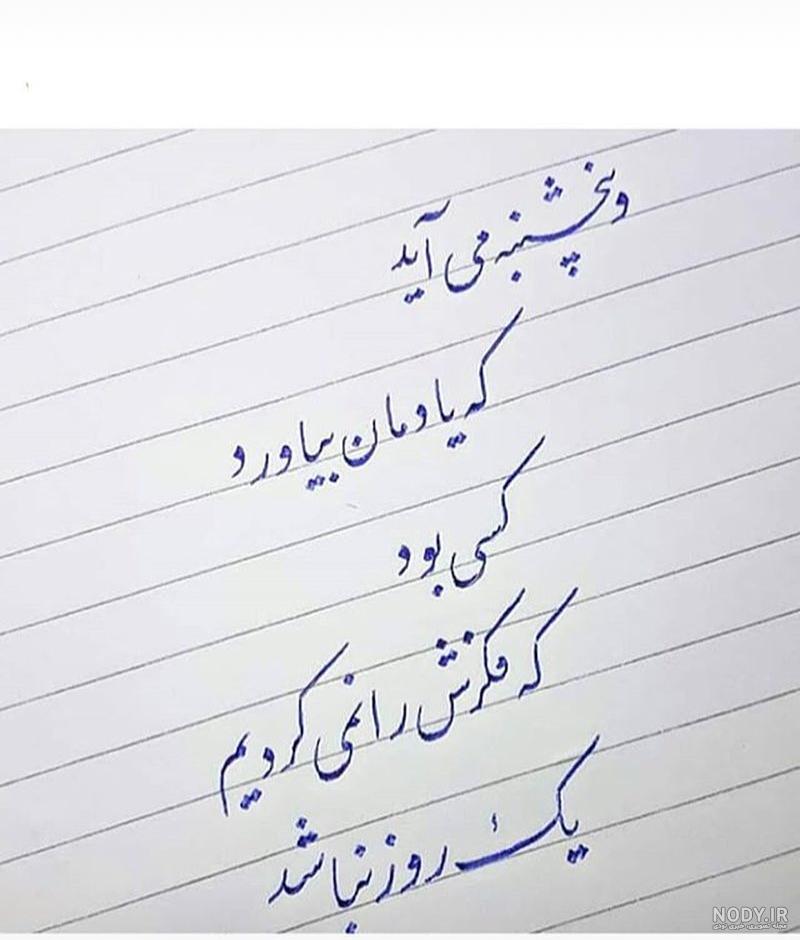 و پنجشنبه می آید
که یادمان بیاورد
کسی بود
که فکرش را نمی کردیم
یک روز نباشد
NODY.IR
مجله تصویری خبری نودی